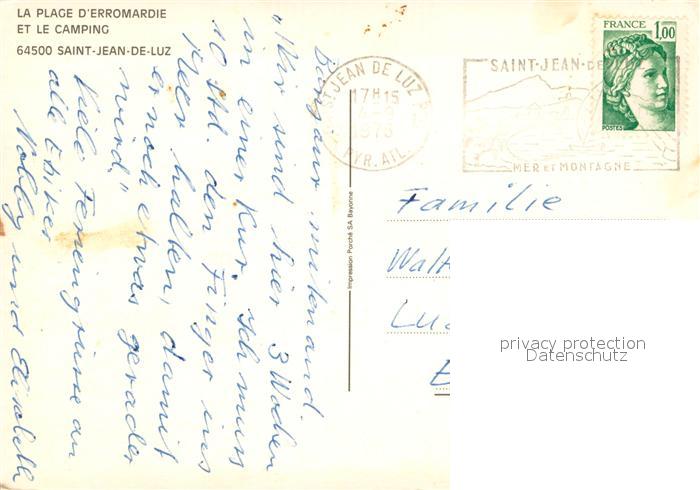 LA PLAGE D'ERROMARDIE
ET LE CAMPING
64500 SAINT-JEAN-DE-LUZ
Bonjour mitenand.
"Wir sind hier 3 Wochen
in einer Kur. Ich muss
10 Std. den Finger ins
Meer halten, damit
er noch etwas gerader
wird."
Viele Feriengrüsse an
alle
Nobby und Elisabeth
Impression Porché SA Bayonne
ST JEAN DE LUZ
17H15
1978
PYR. ATL.
SAINT-JEAN-DE
MER ET MONTAGNE
FRANCE 1,00
POSTES
Familie
Walt
privacy protection
Datenschutz